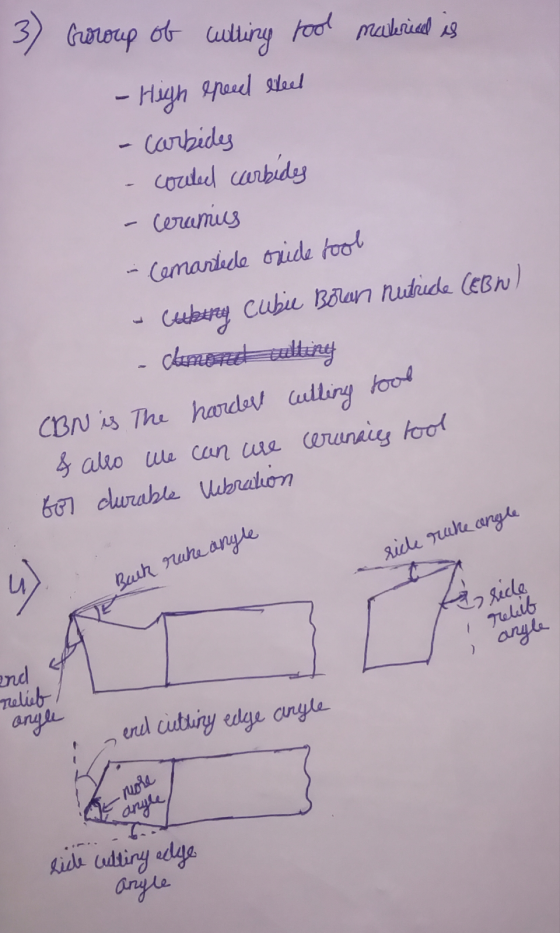 3) Group of cutting tool material is
- High speed steel
- Carbides
- coated carbides
- Ceramics
- Cemantede oxide tool
- Cubing Cubic Boran Nutride (CBN)
- diamond cutting
CBN is The hardest cutting tool
& also we can use ceramics tool
for durable Vibration
4) Back rake angle
end
relief
angle
side rake angle
side
relief
angle
end cutting edge angle
nose
angle
side cutting edge
angle